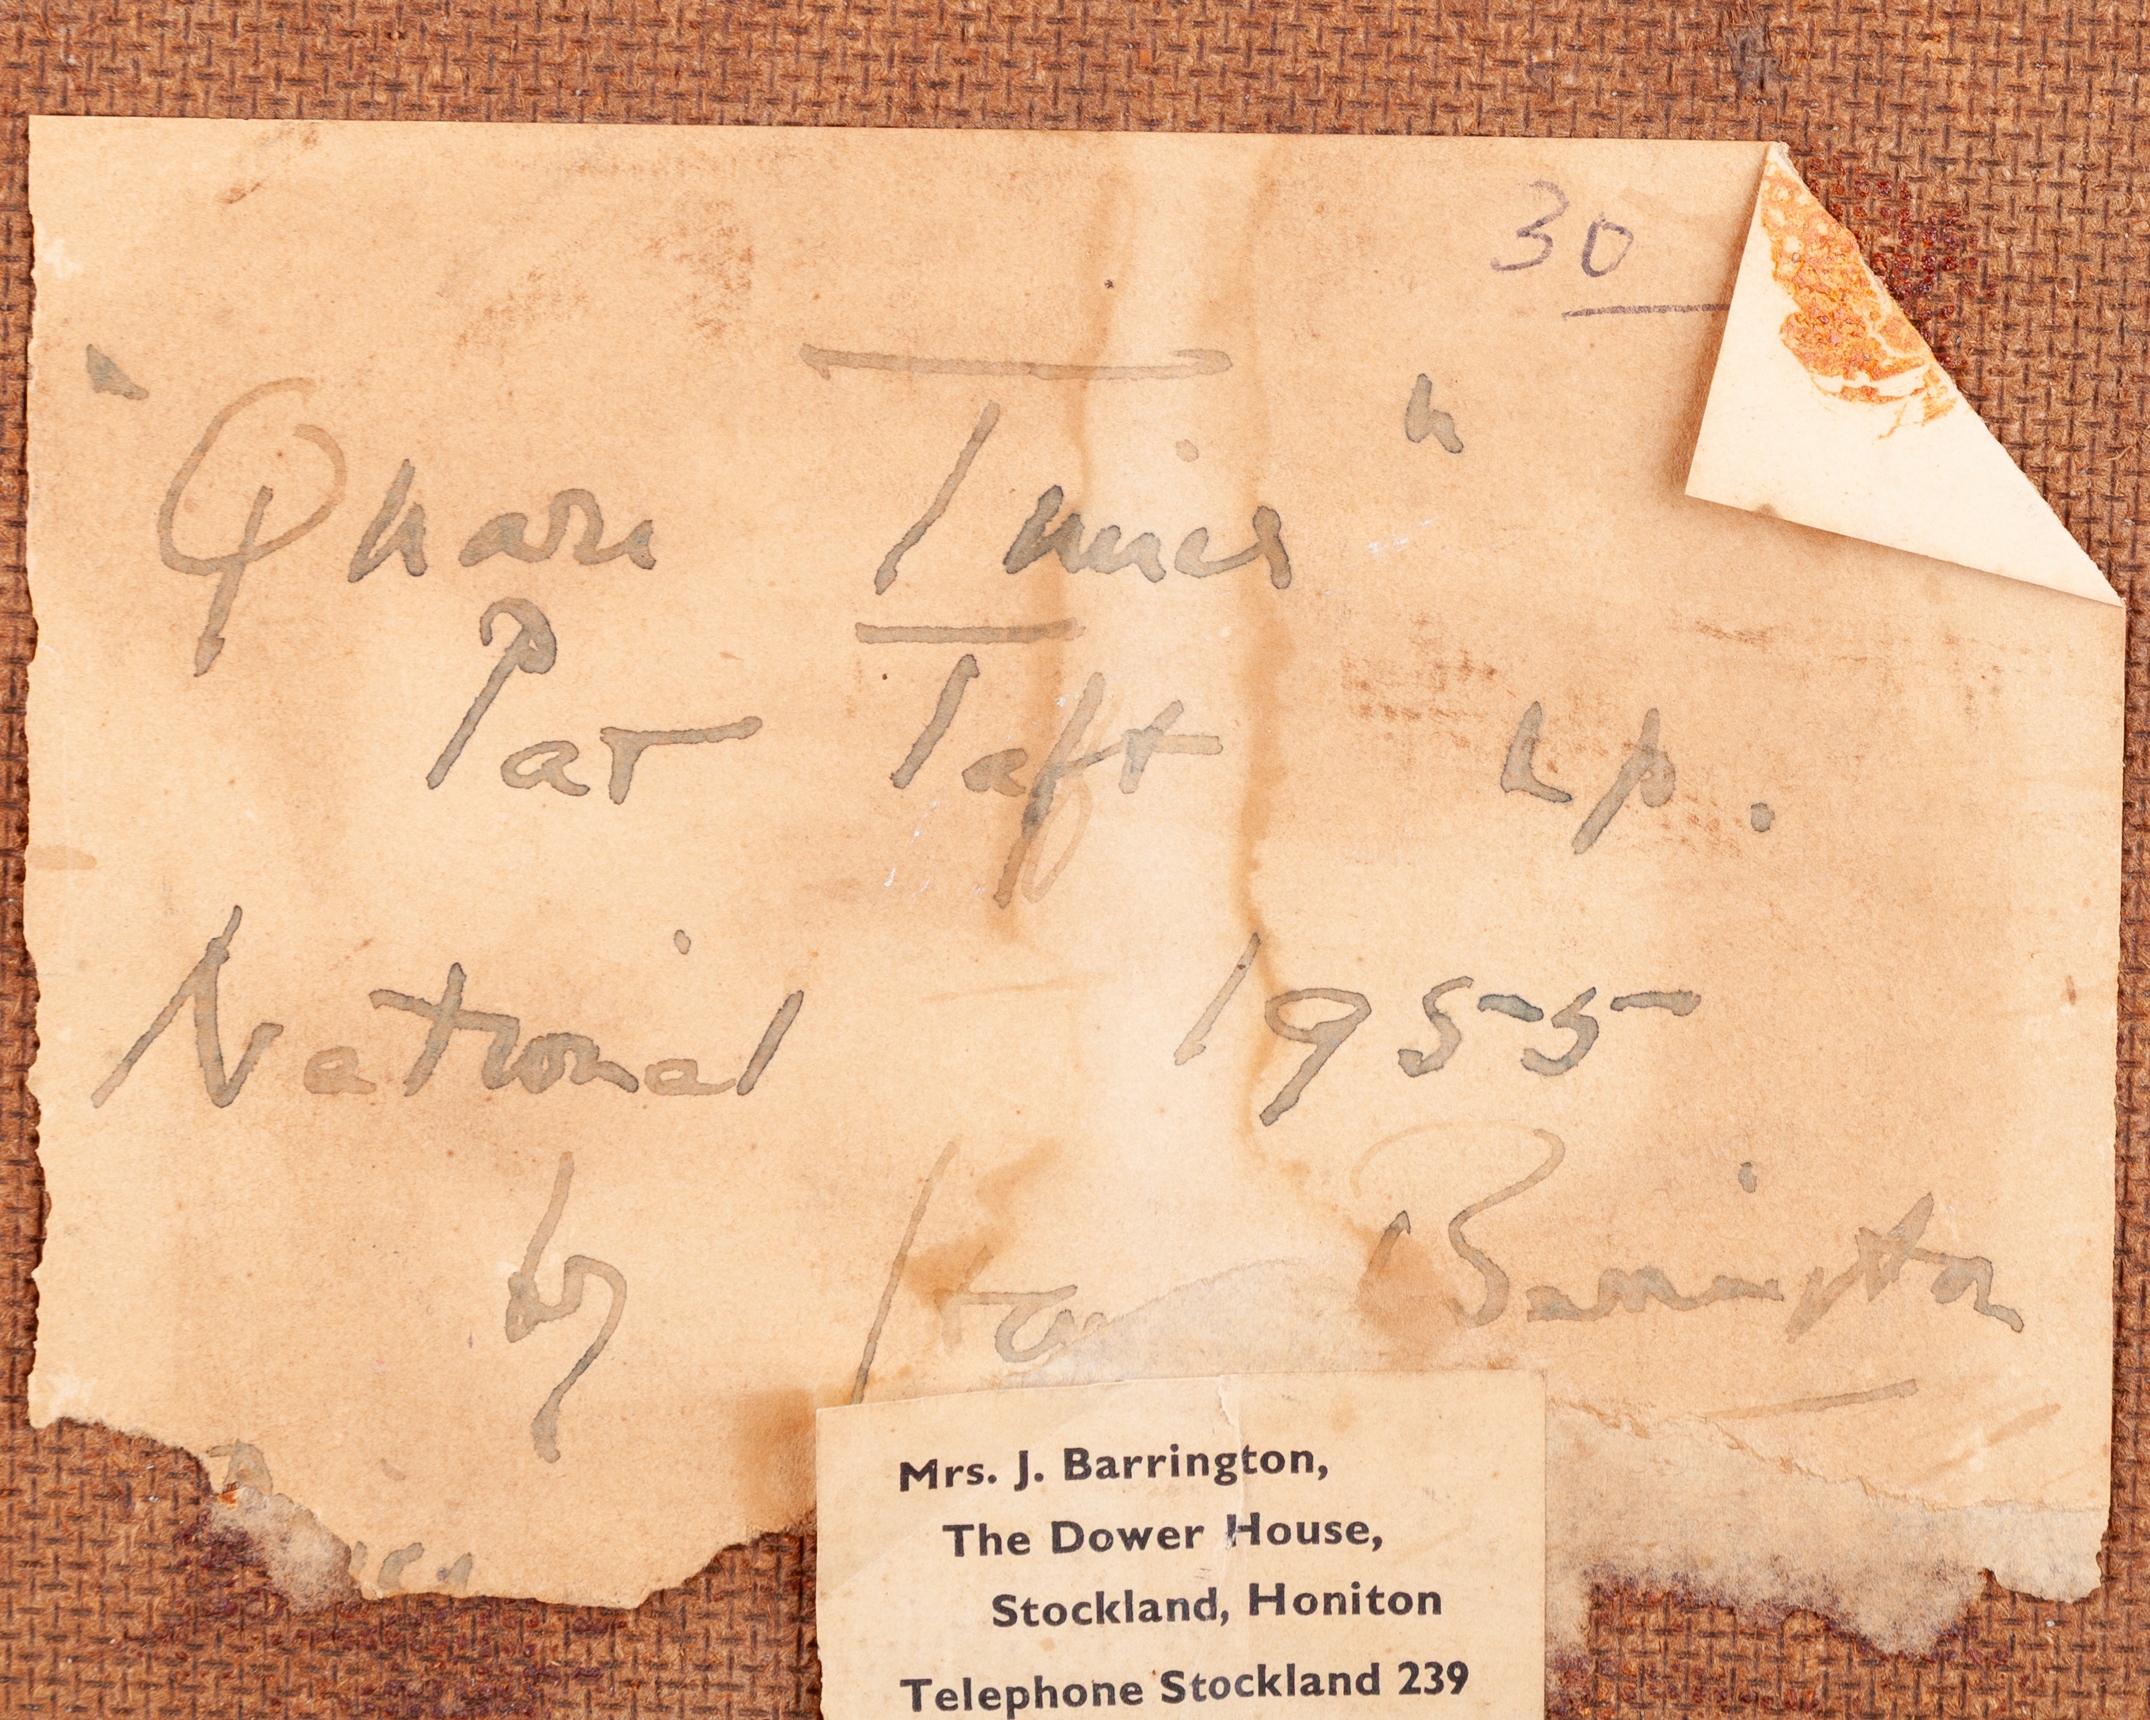 30
"Quare Times"
Pat Taft up.
National 1955
by Barrington
Mrs. J. Barrington,
The Dower House,
Stockland, Honiton
Telephone Stockland 239